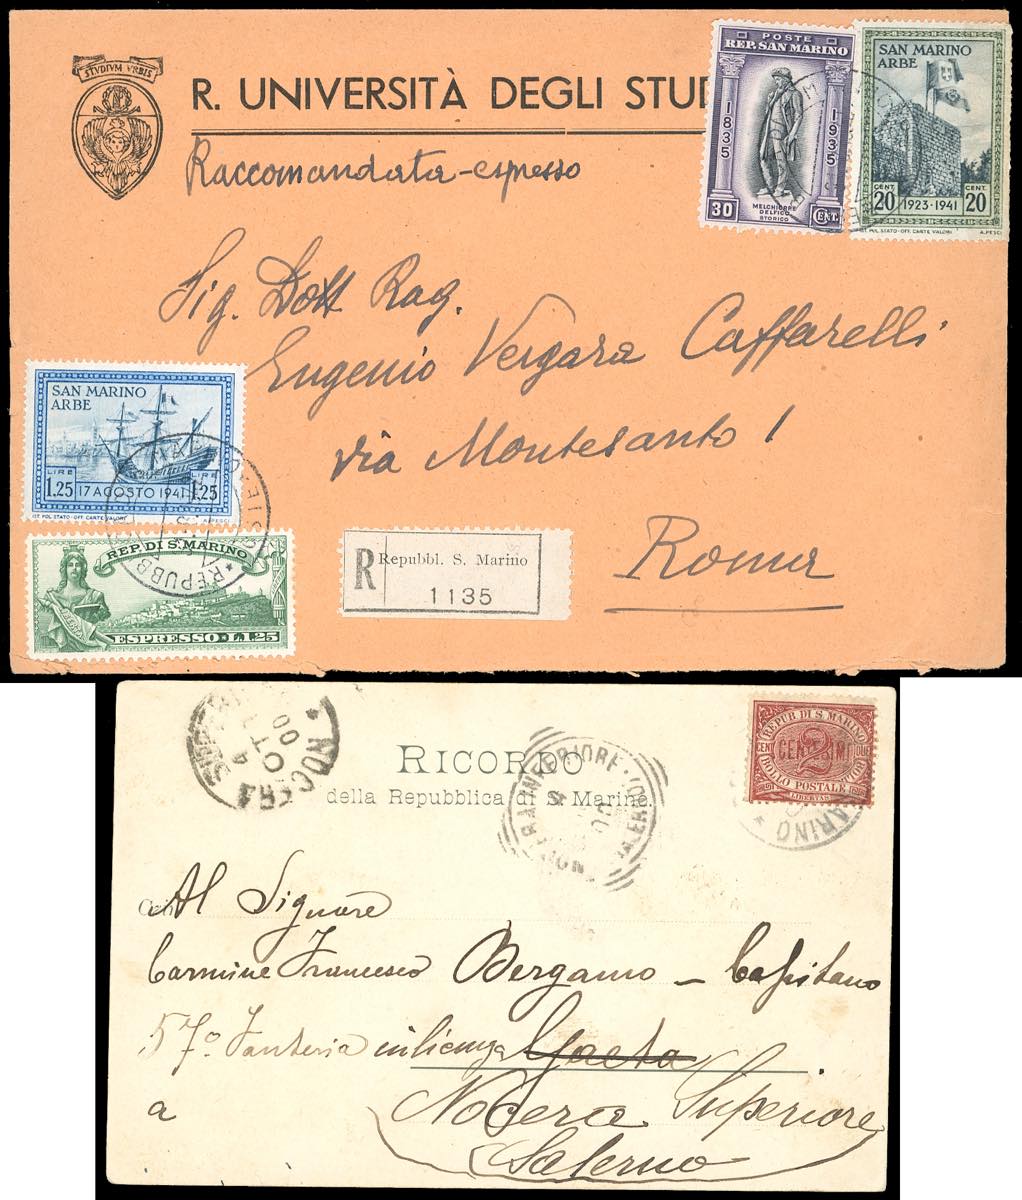 STVDIVM VRBIS
R. UNIVERSITÀ DEGLI STUD
Raccomandata-espresso
POSTE
REP. SAN MARINO
1835
1935
MELCHIORRE
DELFICO
STORICO
30 CENT.
SAN MARINO
ARBE
CENT. 20 1923·1941 CENT. 20
IST. POL. STATO·OFF. CARTE VALORI A.PESCI
Sig. Dott Rag.
Eugenio Vergara Caffarelli
via Montesanto 1
Roma
SAN MARINO
ARBE
LIRE 1.25 17 AGOSTO 1941 LIRE 1.25
IST. POL. STATO·OFF. CARTE VALORI A.PESCI
REP. DI S. MARINO
ESPRESSO·L1.25
REPUBB
R Repubbl. S. Marino
1135
NOCERA
4 OTT 00
RICORDO
della Repubblica di S. Marino.
REPUB DI S. MARINO
CENT CENTESIMI DUE
2
BOLLO POSTALE
LIBERTAS
MARINO
Al Signore
Carmine Francesco Bergamo - Capitano
57º Fanteria in licenza Gaeta
a Nocera Superiore
Salerno